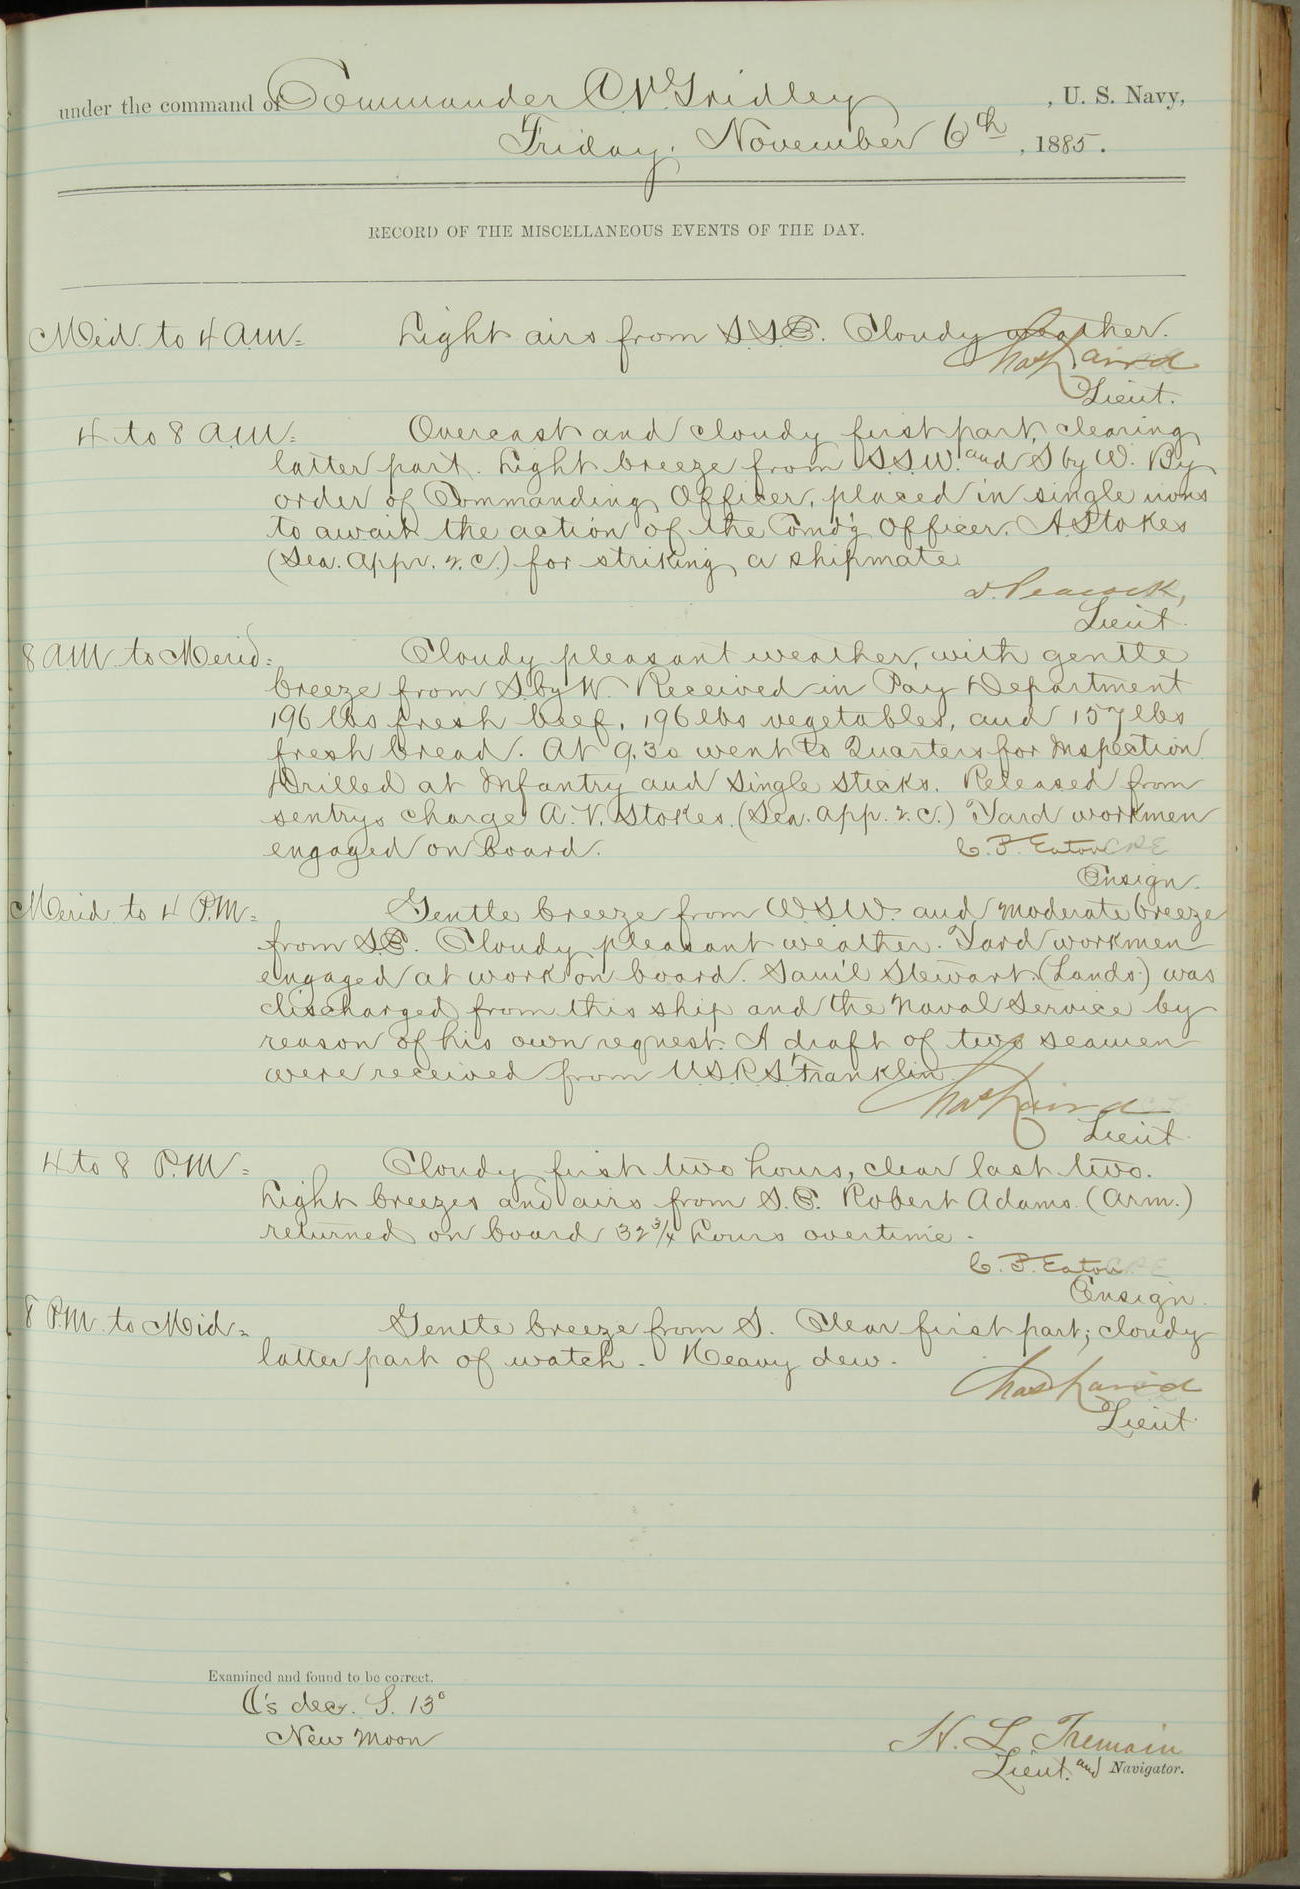 under the command of Commander C V Gridley, U. S. Navy,
Friday, November 6th, 1885.
RECORD OF THE MISCELLANEOUS EVENTS OF THE DAY.
Mid. to 4 A.M. = Light airs from S.S.E. Cloudy weather.
Chas Laird
Lieut.
4 to 8 A.M. = Overcast and cloudy first part, clearing
latter part. Light breeze from S.S.W. and S by W. By
order of Commanding Officer, placed in single irons
to await the action of the Comd'g Officer. A. Stokes
(Sea. Appr. 2. C.) for striking a shipmate
D. Peacock,
Lieut.
8 A.M. to Merid = Cloudy pleasant weather, with gentle
breeze from S. by W. Received in Pay Department
196 lbs fresh beef, 196 lbs vegetables, and 157 lbs
fresh bread. At 9.30 went to Quarters for Inspection
Drilled at Infantry and Single sticks. Released from
sentrys charge A. V. Stokes. (Sea. App. 2. C.) Yard workmen
engaged on board.
C. P. Eaton CPE
Ensign.
Merid. to 4 P.M. = Gentle breeze from W.S.W. and moderate breeze
from S.E. Cloudy pleasant weather. Yard workmen
engaged at work on board. Sam'l Stewart (Lands.) was
discharged from this ship and the Naval Service by
reason of his own request. A draft of two seamen
were received from U.S.R.S. Franklin
Chas Laird
Lieut.
4 to 8 P.M = Cloudy first two hours, clear last two.
Light breezes and airs from S.E. Robert Adams (Arm.)
returned on board 32 3/4 hours overtime.
C. P. Eaton CPE
Ensign.
8 P.M. to Mid = Gentle breeze from S. Clear first part; cloudy
latter part of watch. Heavy dew.
Chas Laird
Lieut.
Examined and found to be correct.
☾'s dec. S. 13°
New Moon
H. L. Tremain
Lieut. and Navigator.